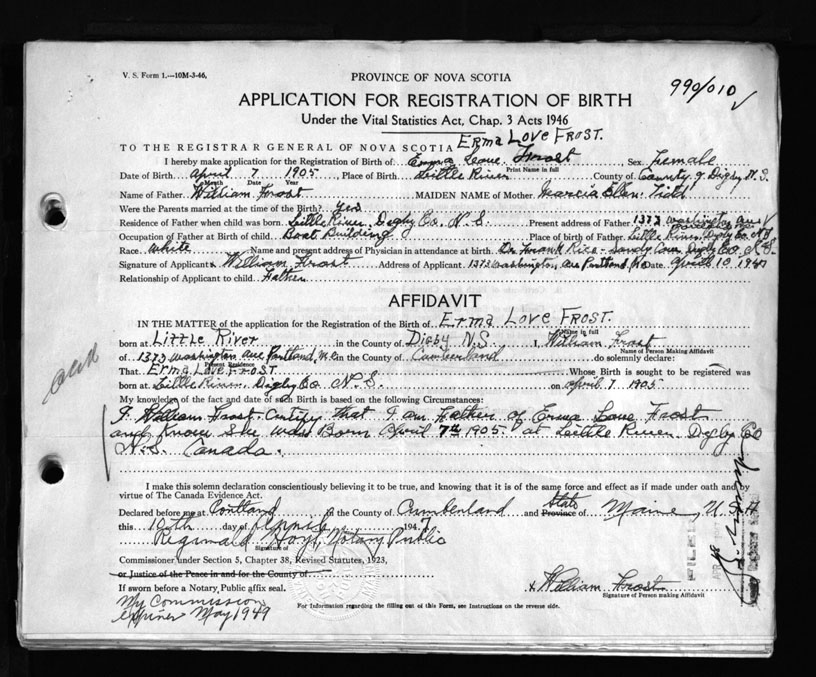 V. S. Form 1.—10M-3-46.
PROVINCE OF NOVA SCOTIA
990/010
APPLICATION FOR REGISTRATION OF BIRTH
Under the Vital Statistics Act, Chap. 3 Acts 1946
ERMA LOVE FROST.
TO THE REGISTRAR GENERAL OF NOVA SCOTIA
I hereby make application for the Registration of Birth of Erma Love Frost Sex Female
Print Name in full
Date of Birth April 7 1905 Place of Birth Little River County of County of Digby N.S.
Month Date Year
Name of Father William Frost MAIDEN NAME of Mother Marcia Ellen
Were the Parents married at the time of the Birth? Yes
Residence of Father when child was born Little River, Digby Co. N.S. Present address of Father 1373 Washington Ave
Occupation of Father at Birth of child Boat Building Place of birth of Father Little River Digby Co. N.S.
Race White Name and present address of Physician in attendance at birth Dr Frank Rice Sandy Cove Digby Co. N.S.
Signature of Applicant x William Frost Address of Applicant 1373 Washington Ave Portland Me Date April 10 1947
Relationship of Applicant to child Father
AFFIDAVIT
IN THE MATTER of the application for the Registration of the Birth of ERMA LOVE FROST.
Name in full
born at LITTLE RIVER in the County of DIGBY N.S. I, William Frost
Name of Person Making Affidavit
of 1373 Washington Ave Portland, Me in the County of Cumberland do solemnly declare:
Present Residence
That ERMA LOVE FROST Whose Birth is sought to be registered was
born at Little River, Digby Co N.S. on April 7 1905
My knowledge of the fact and date of such Birth is based on the following Circumstances:
I William Frost Certify that I am Father of Erma Love Frost
and Know She was Born April 7th 1905 at Little River Digby Co
N.S. Canada.
I make this solemn declaration conscientiously believing it to be true, and knowing that it is of the same force and effect as if made under oath and by
virtue of The Canada Evidence Act.
Declared before me at Portland in the County of Cumberland and State Province of Maine, U.S.A
this 10th day of April 1947
Reginald Hoyt, Notary Public
Signature of
Commissioner under Section 5, Chapter 38, Revised Statutes, 1923,
or Justice of the Peace in and for the County of
If sworn before a Notary Public affix seal.
x William Frost
Signature of Person making Affidavit
My Commission
Expires May 1949
For Information regarding the filling out of this Form, see Instructions on the reverse side.